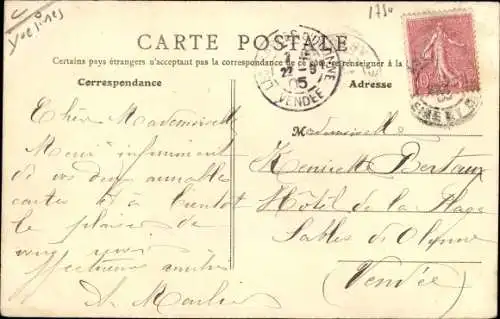 1730
Yvelines
CARTE POSTALE
Certains pays étrangers n'acceptant pas la correspondance de ce côté, se renseigner à la
Correspondance
Adresse
27 - 5
05
VENDÉE
10
Chère Mademoiselle
Merci infiniment
de vos deux aimables
cartes et à bientôt
le plaisir de
vous
affectueuse amitié
Mademoiselle
Henriette Bertaux
Hôtel de la Plage
Sables d'Olonne
(Vendée)